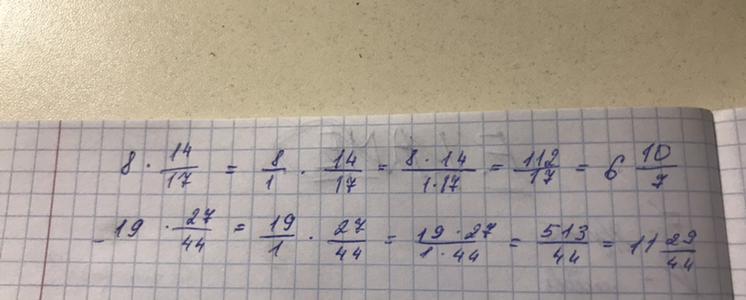 8 · 14/17 = 8/1 · 14/17 = 8 · 14/1·17 = 112/17 = 6 10/7
- 19 · 27/44 = 19/1 · 27/44 = 19 · 27/1 · 44 = 513/44 = 11 29/44